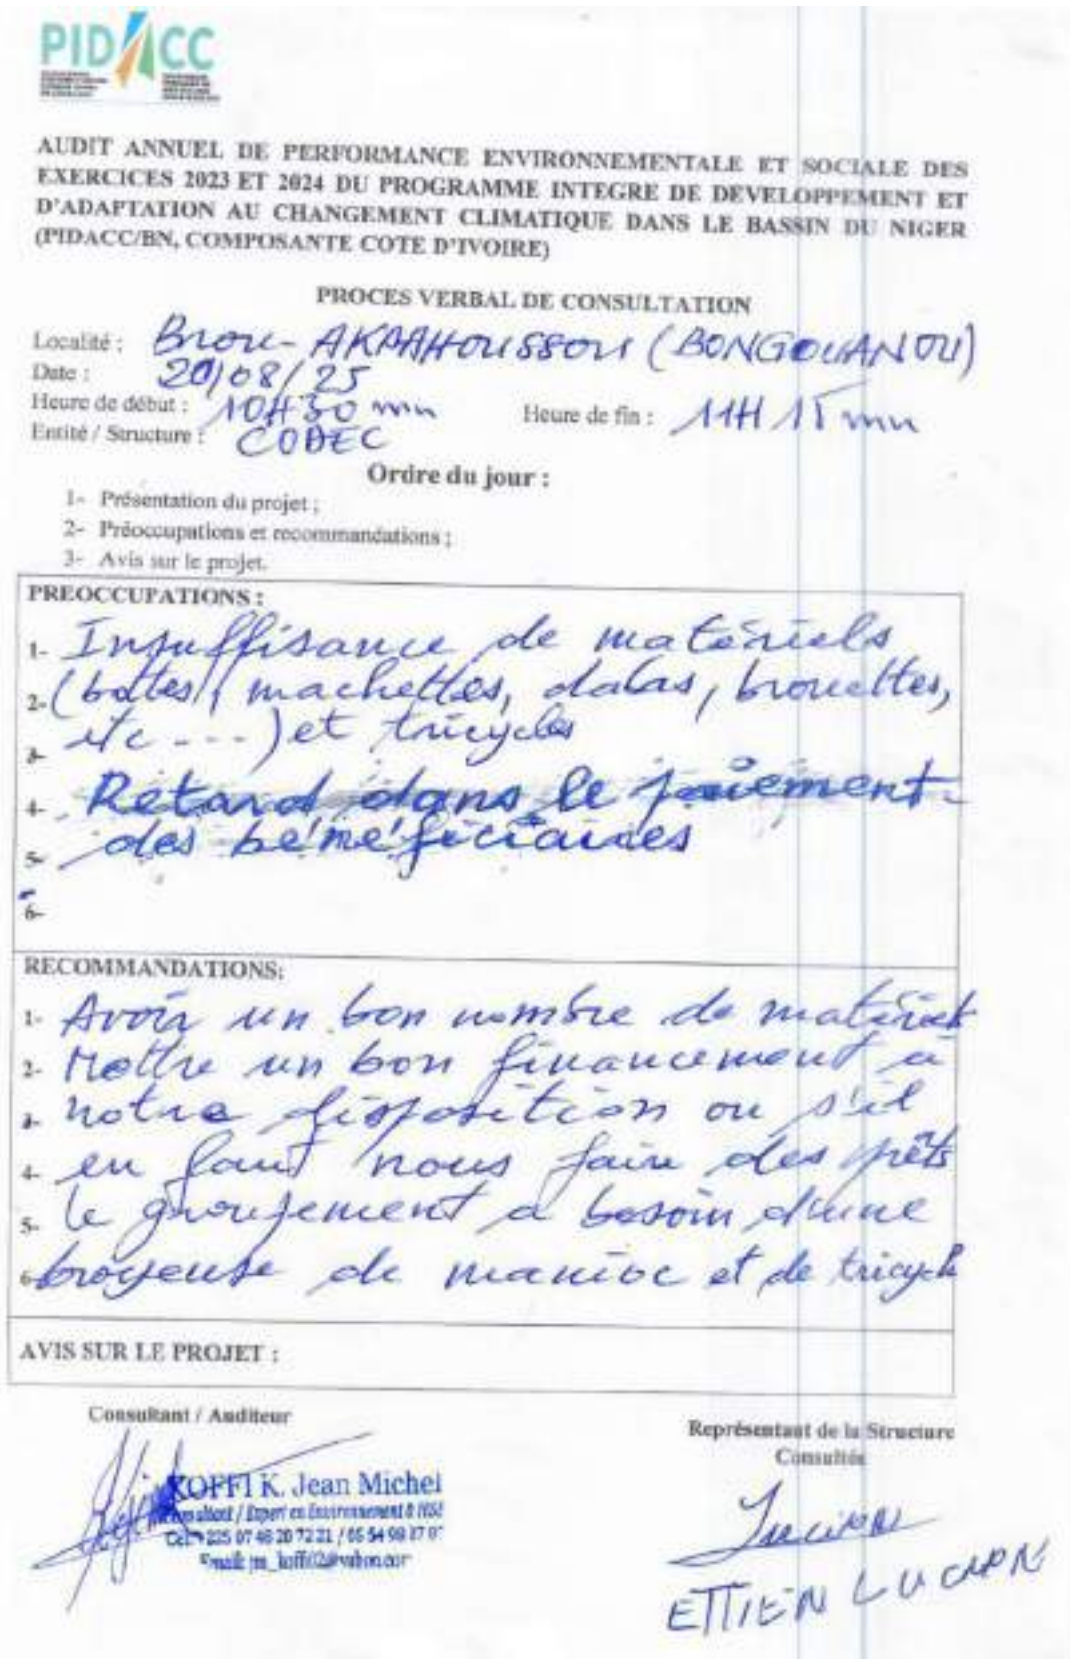 PIDACC
AUDIT ANNUEL DE PERFORMANCE ENVIRONNEMENTALE ET SOCIALE DES
EXERCICES 2023 ET 2024 DU PROGRAMME INTEGRE DE DEVELOPPEMENT ET
D'ADAPTATION AU CHANGEMENT CLIMATIQUE DANS LE BASSIN DU NIGER
(PIDACC/BN, COMPOSANTE COTE D'IVOIRE)
PROCES VERBAL DE CONSULTATION
Localité : Brou-AKPAHOUSSOU (BONGOUANOU)
Date : 20/08/25
Heure de début : 10H30 mn Heure de fin : 11H 15 mn
Entité / Structure : CODEC
Ordre du jour :
1- Présentation du projet ;
2- Préoccupations et recommandations ;
3- Avis sur le projet.
PREOCCUPATIONS :
1- Insuffisance de matériels
2- (bottes, machettes, dabas, brouettes,
3- etc ...) et tricycles
4- Retard dans le paiement
5- des bénéficiaires
6-
RECOMMANDATIONS:
1- Avoir un bon nombre de matériels
2- Mettre un bon financement à
3- notre disposition ou s'il
4- en faut nous faire des prêts
5- Le groupement a besoin d'une
6- broyeuse de manioc et de tricycle
AVIS SUR LE PROJET :
Consultant / Auditeur
Représentant de la Structure
Consultée
KOFFI K. Jean Michel
Consultant / Expert en Environnement & HSE
ETTIEN